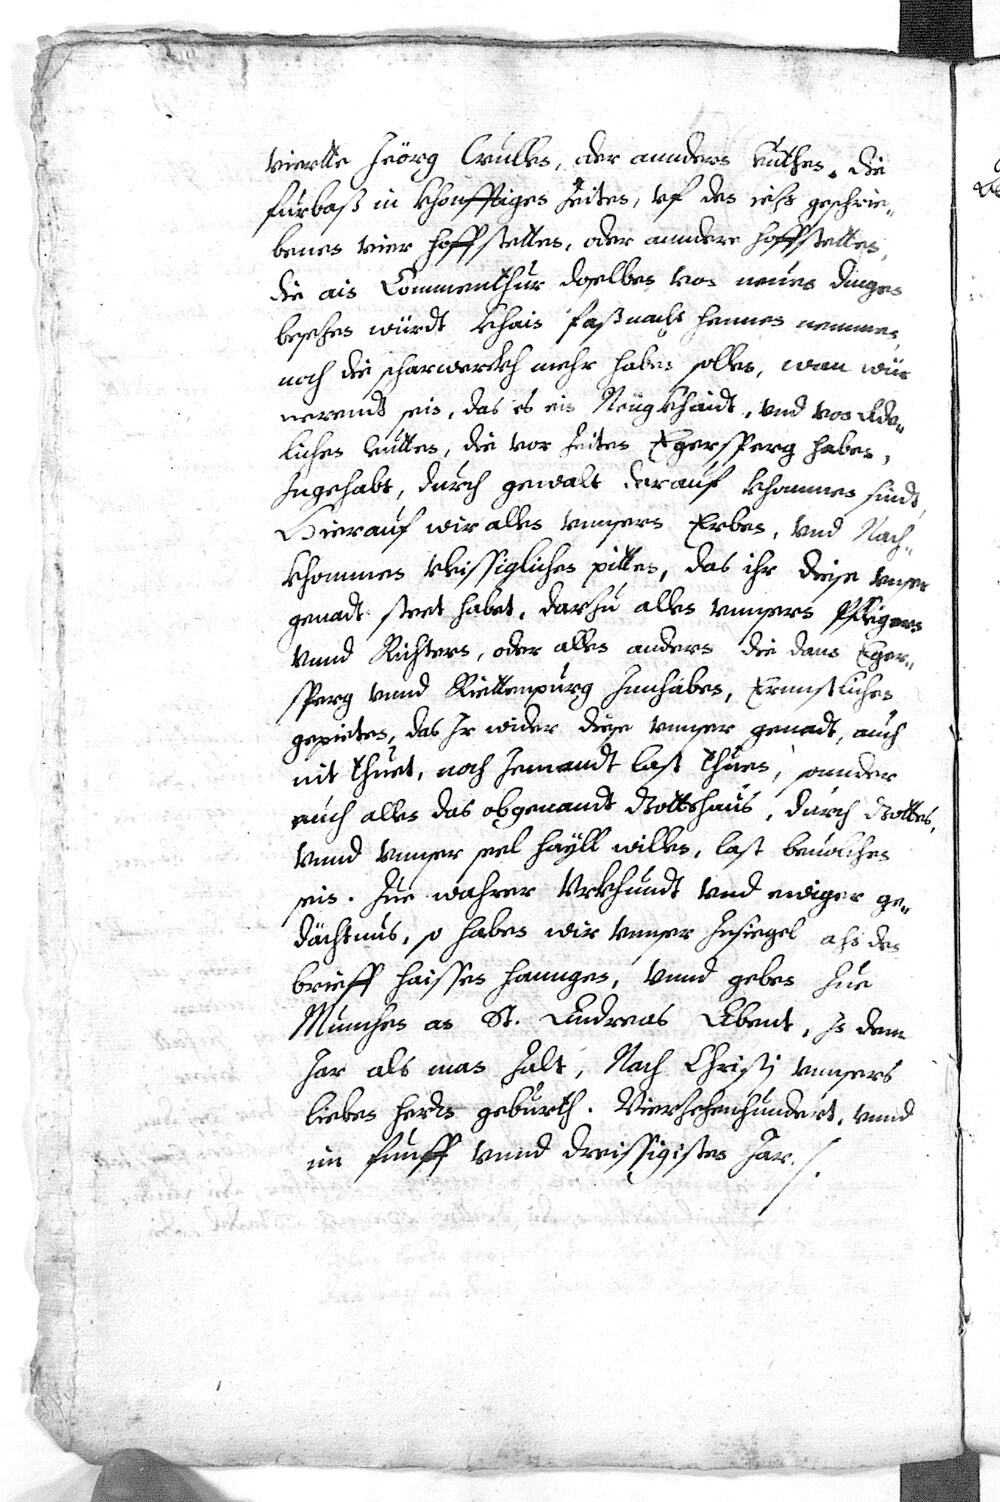 viertte Jeörg Crulls, oder annders leüthen, die
fürbaß in khonfftigen Zeiten, vf den iezt geschrie„
benen vier hoffstetten, oder anndere hoffstetten,
die ain Commenthur daselben von neuen dingen
besezen würdt khain faßnacht hennen nemmen,
noch die scharwerckh mehr haben sollen, wan wür
sein, das es ein Neügkhaidt, vnd von Ade„
lichen leütten, die vor Zeiten Egersperg haben,
Jngehabt, durch gewalt darauf khommen sindt,
Hierauf wir allen vnnsern Erben, vnd Nach„
khommen vleissiglichen pitten, das ihr diese vnser
genadt stret habet, darzu allen vnnsern Pflegern
vnnd Richtern, oder allen andern die dann Eger„
sperg vnnd Riettenpurg Innhaben, Ernnstlichen
gepieten, das Ir wider diese vnnser genadt, auch
nit thuet, noch Jemandt last thuen, sonnder
euch allen das obgenandt Gottshaus, durch Gottes,
vnnd vnnser seel hayll willen, last beuolchen
sein. Zue wahrer Vrkhundt vnd ewiger ge„
dächtnus, so haben wir vnnser Insiegel ahn den
brieff haissen hanngen, vnnd geben Zue
München an St. Andreas Abent, In dem
Jar als man Zalt, Nach Christj vnnsers
lieben herrn geburth. Vierzehenhundert, vnnd
im fünff vnnd dreissigisten Jar./.